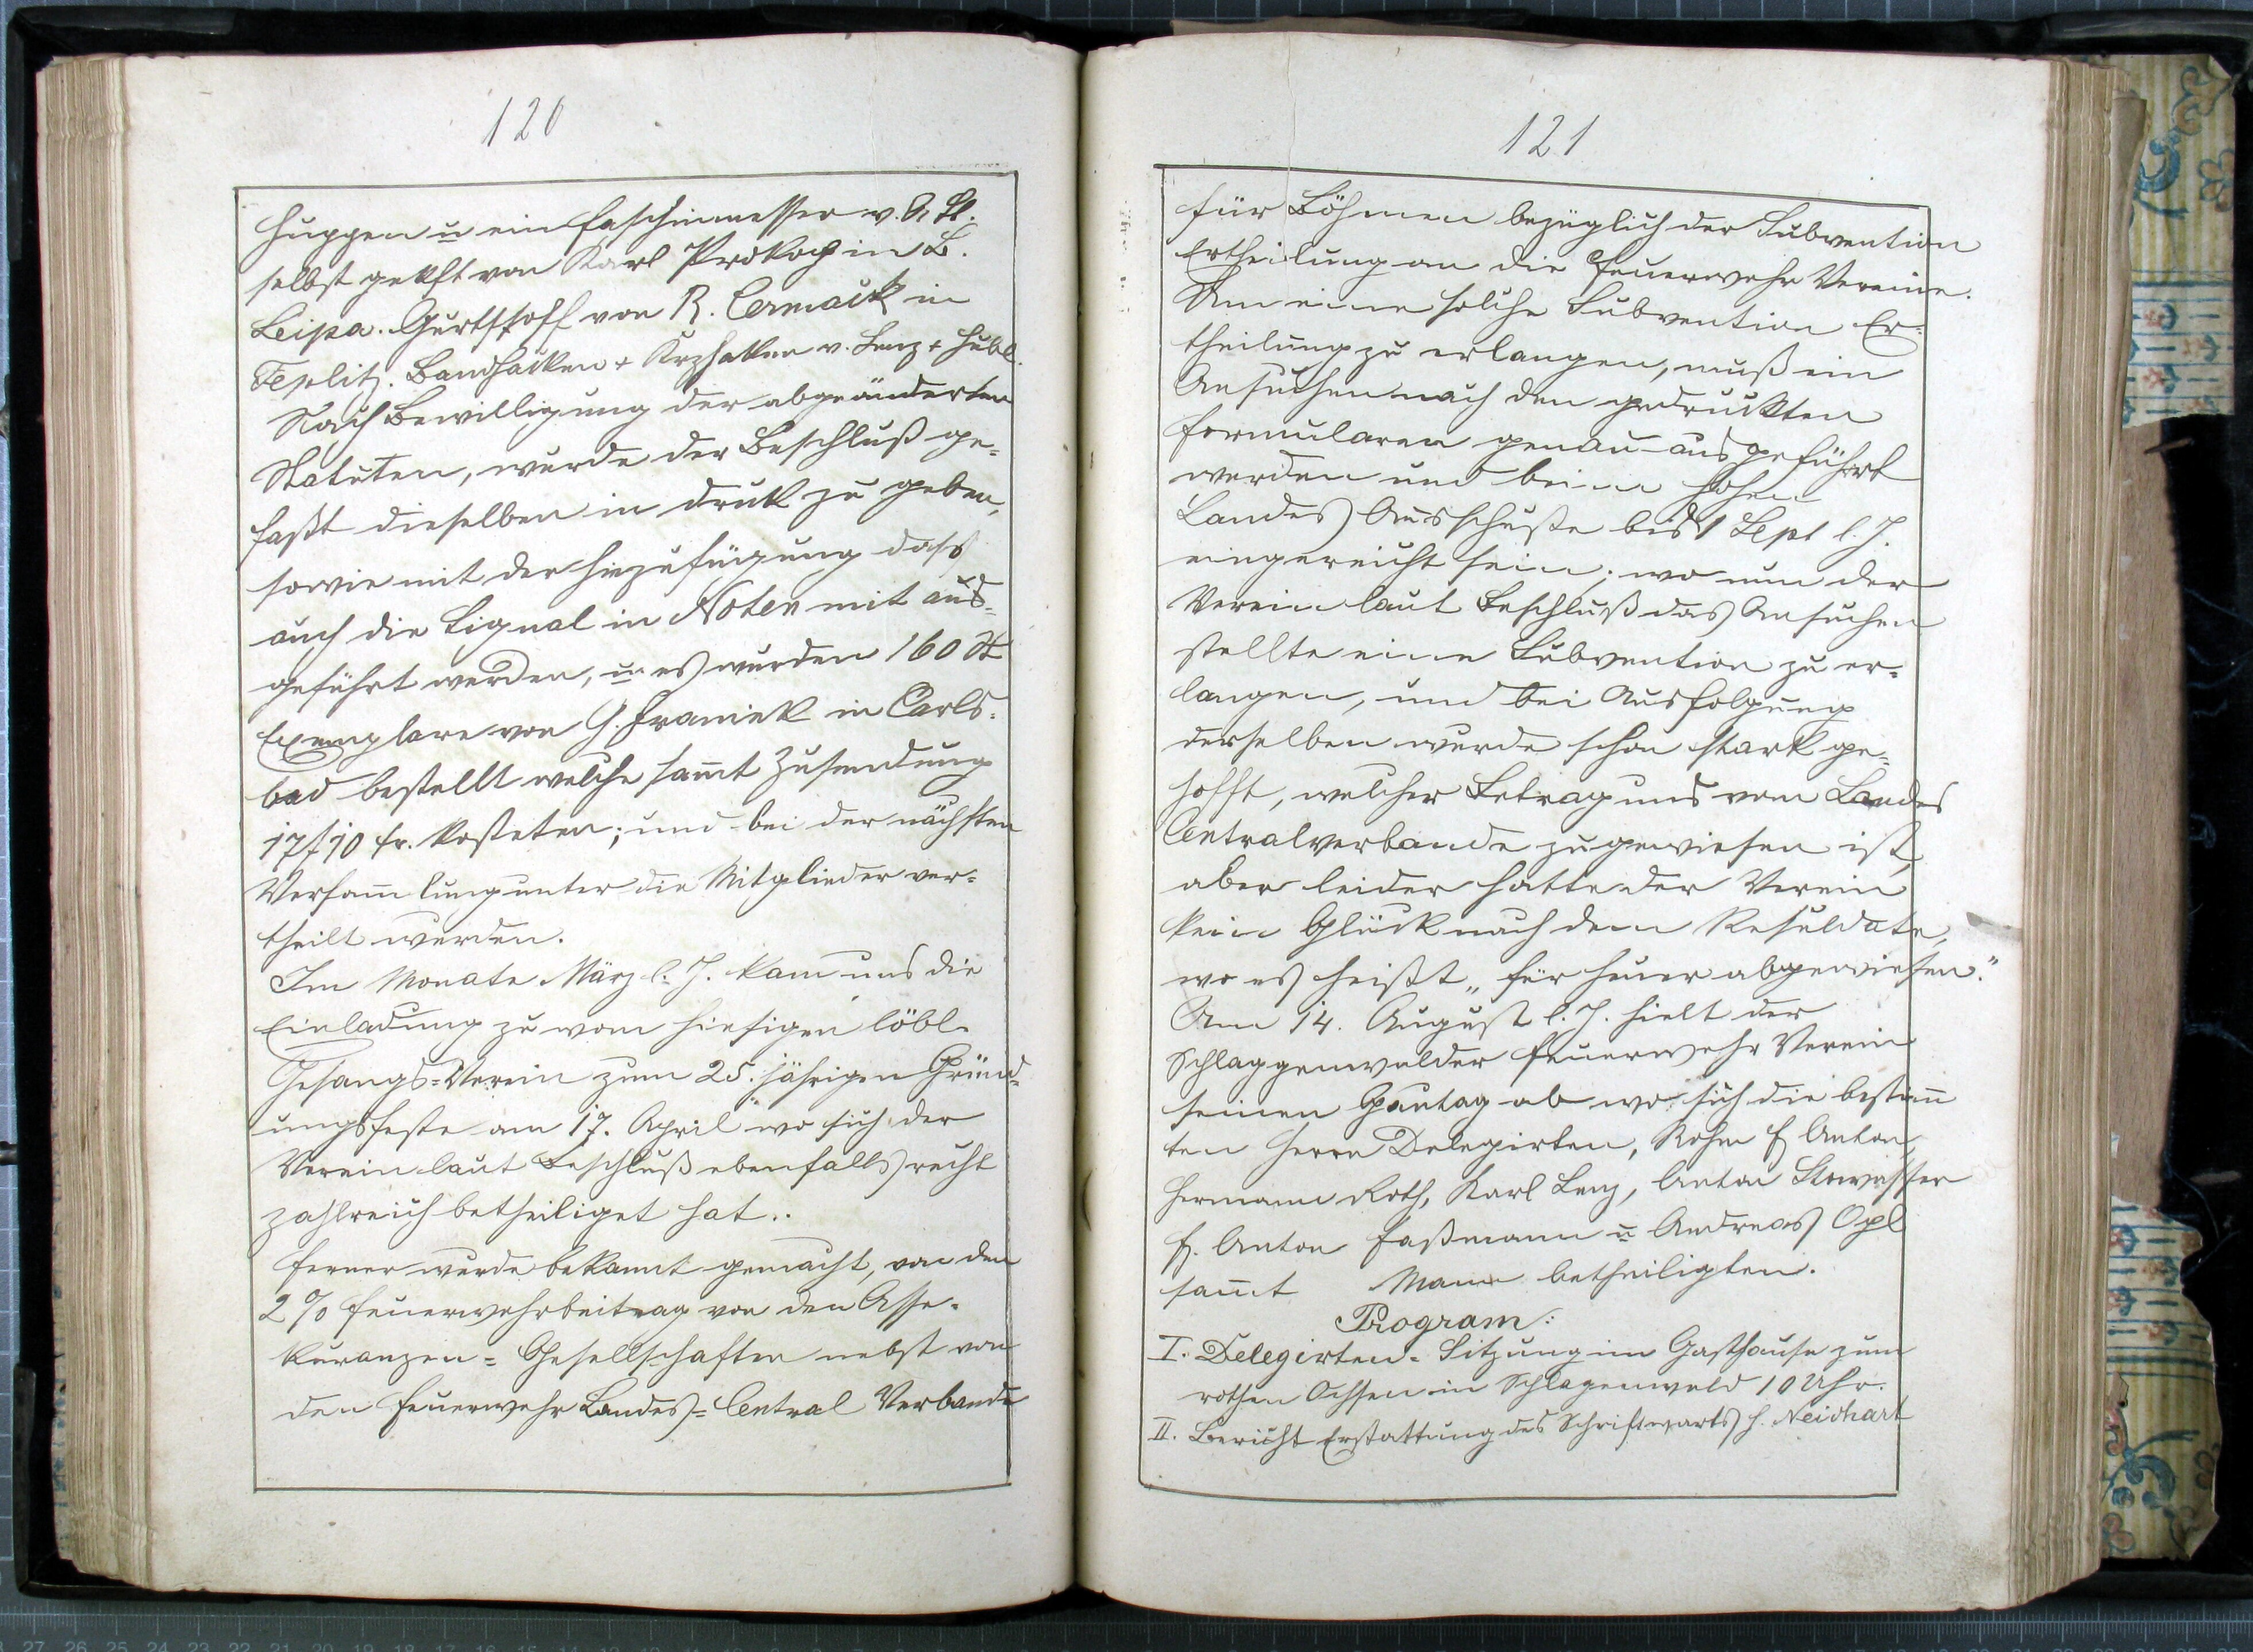 120
Huppen u ein Faschinmesser v. A. St.
selbst gekft von Karl Prokop in B.
Leipa. Gurtstoff von R. Cermack in
Teplitz. Bandhacken + Krzhakken v. Lenz + Hubl.
Nach Bewilligung der abgeänderten
Statuten, wurde der Beschluß ge=
faßt dieselben in druk zu geben,
sowie mit der Hinzufügung dass
auch die Signal in Noten mit aus=
geführt werden, u es wurden 160 St
Exemplare von G. Franiek in Carls=
bad bestellt welche samt Zusendung
17 f 10 kr. kosteten; und bei der nächsten
Versamlung unter die Mitglieder ver=
theilt wurden.
Im Monate März l. J. kam uns die
Einladung zu vom hiesigen löbl.
Gesangs=Verein zum 25. jährigen Gründ=
ungsfeste am 17. April wo sich der
Verein laut Beschluß ebenfalls recht
zahlreich betheiliget hat..
Ferner wurde bekannt gemacht, von den
2 % Feuerwehrbeitrag von den Asse=
kuranzen=Gesellschaften nebst von
den Feuerwehr Landes=Central Verbande
121
für Böhmen bezüglich der Subvention
Ertheilung an die Feuerwehr Vereine.
Um eine solche Subvention Er=
theilung zu erlangen, muß ein
Ansuchen nach den gedruckten
Formularen genau ausgeführt
werden und beim hohen
Landes Ausschuße bis 1 Sept l. J.
eingereicht sein; wo nun der
Verein laut Beschluß das Ansuchen
stellte eine Subvention zu er=
langen, und bei Ausfolgung
derselben wurde schon stark ge=
hofft, welcher Betrag uns vom Landes
Centralverbande zugewiesen ist,
aber leider hatte der Verein
kein Glück nach dem Resuldate,
wo es heißt „für heuer abgewiesen."
Am 14. August l. J. hielt der
Schlaggenwalder Feuerwehr Verein
seinen Gautag ab wo sich die bestim
ten Herrn Delegirten, Rohm f Anton,
Hermann Roth, Karl Lenz, Anton Stowasser
f. Anton Faßmann u Andreas Opl
samt Mann betheiligten.
Program:
I. Delegirten=Sitzung im Gasthause zum
rothen Ochsen in Schlagenwald 10 Uhr.
II. Bericht Erstattung des Schriftwarts H. Neidhart